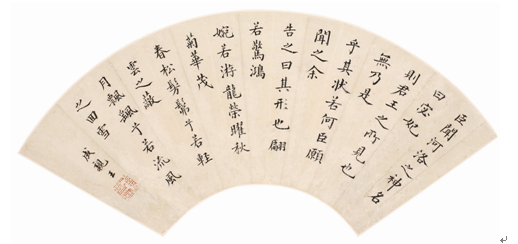 臣聞河洛之神名
曰宓妃
則君王之所見也
無乃是
乎其狀若何臣願
聞之余
告之曰其形也翩
若驚鴻
婉若游龍榮曜秋
菊華茂
春松髣髴兮若輕
雲之蔽
月飄颻兮若流風
之回雪
成親王